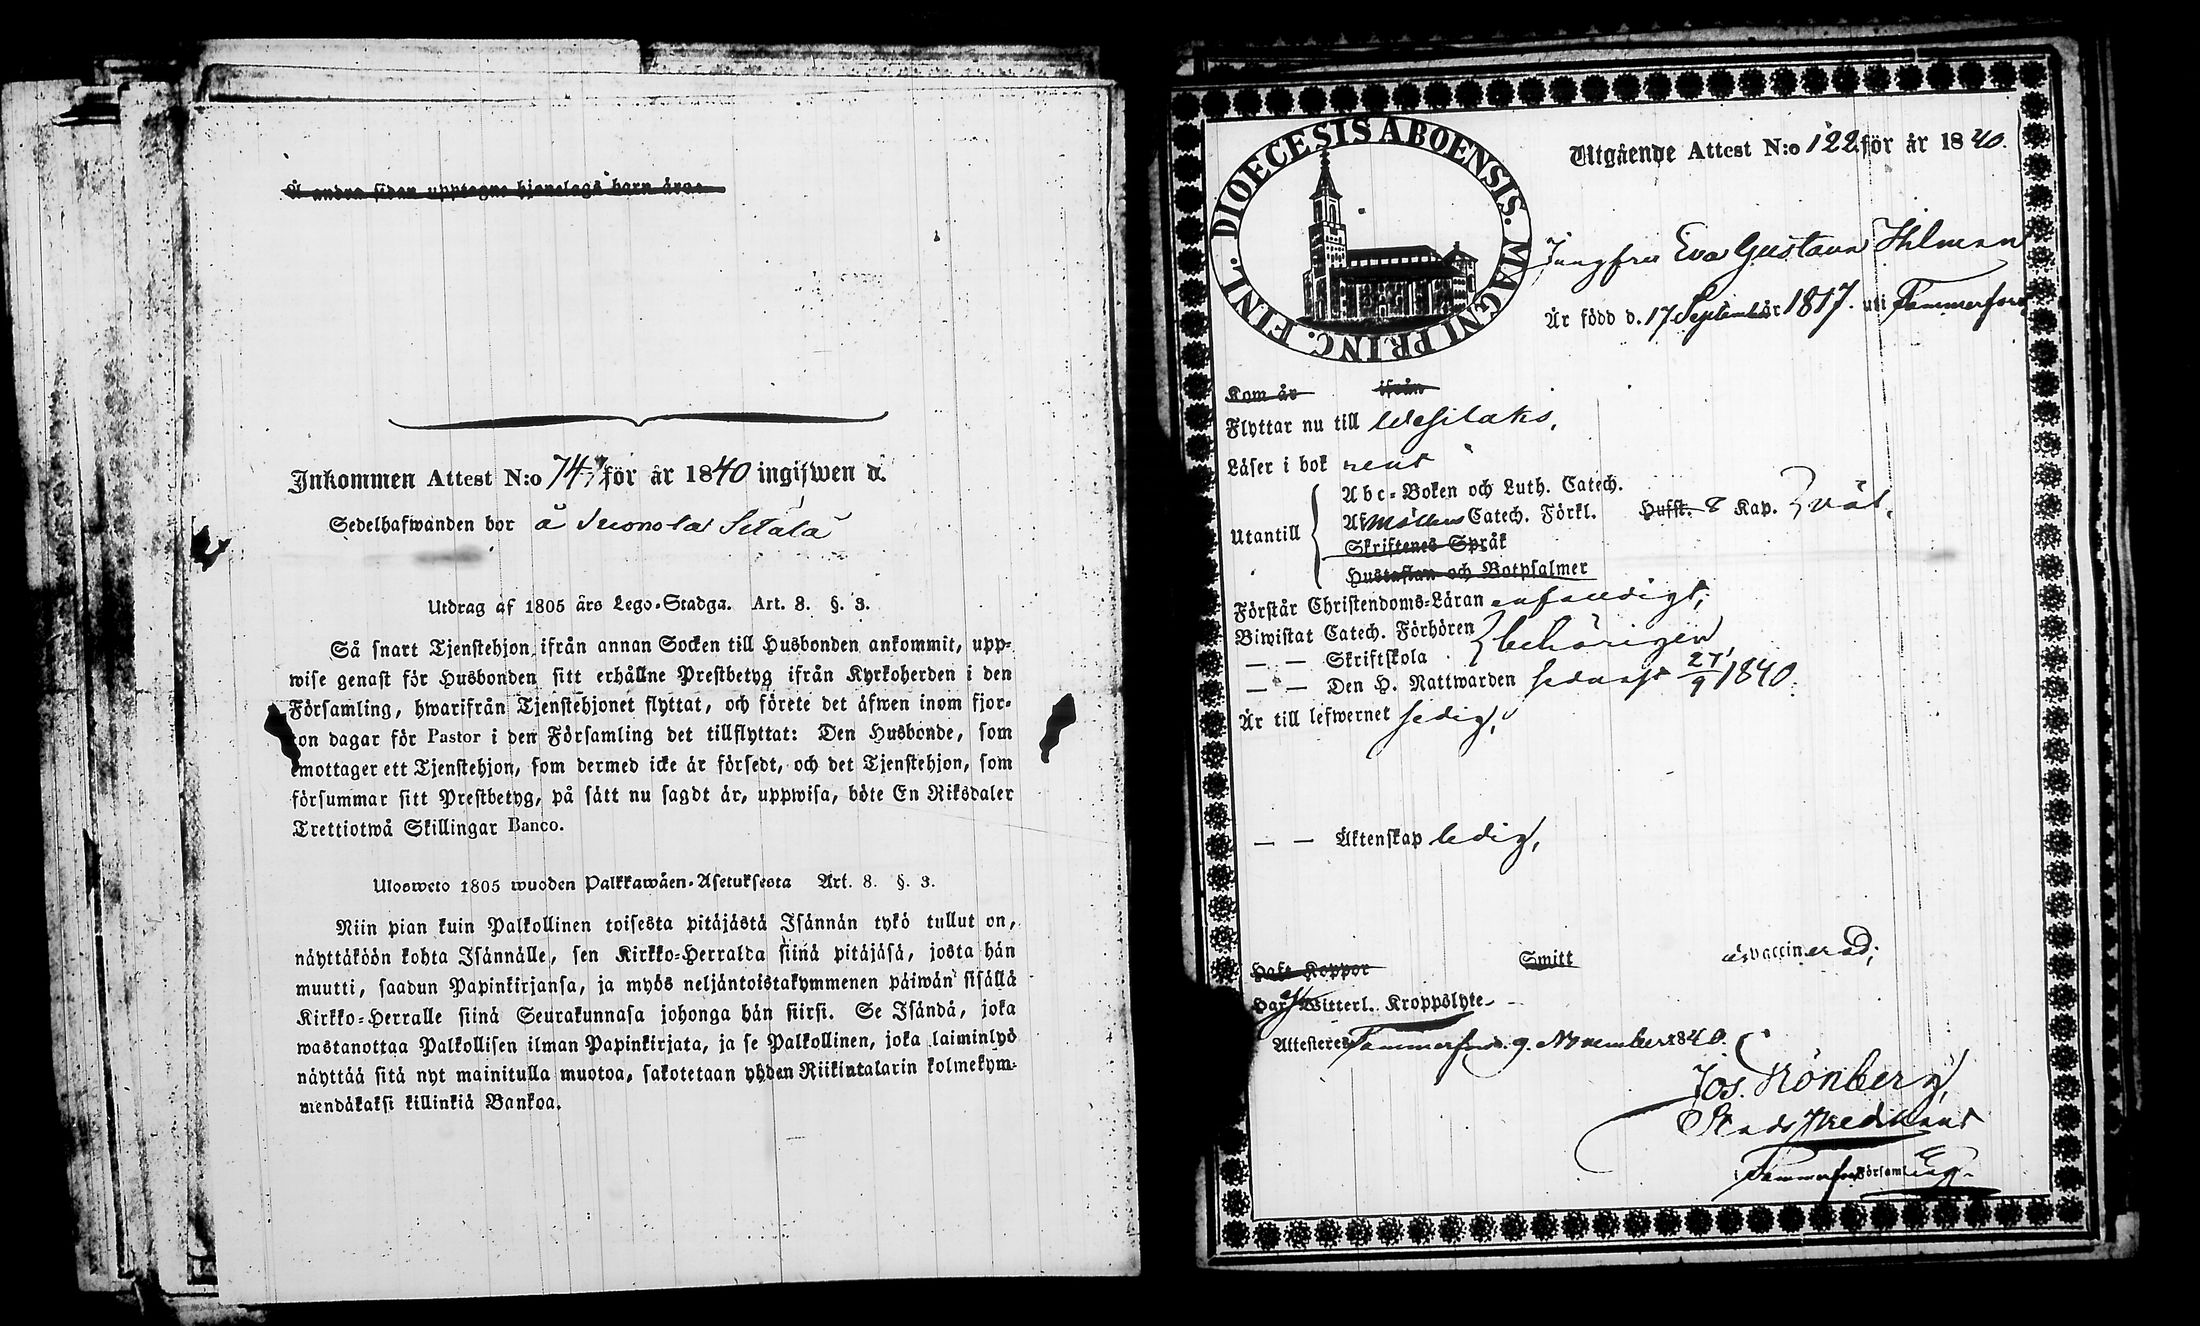 Å andra sidan upptagne hjonelags barn äro:
Inkommen Attest N:o 74 för år 1840 ingifwen d.
Sedelhafwanden bor å Suonola Setälä
Utdrag af 1805 års Lego-Stadga. Art. 8. §. 3.
Så snart Tjenstehjon ifrån annan Socken till Husbonden ankommit, upp-
wise genast för Husbonden sitt erhållne Prestbetyg ifrån Kyrkoherden i den
Församling, hwarifrån Tjenstehjonet flyttat, och förete det äfwen inom fjor-
ton dagar för Pastor i den Församling det tillflyttat: Den Husbonde, som
emottager ett Tjenstehjon, som dermed icke är försedt, och det Tjenstehjon, som
försummar sitt Prestbetyg, på sätt nu sagdt är, uppwisa, böte En Riksdaler
Trettiotwå Skillingar Banco.
Ulosweto 1805 wuoden Palkkawäen-Asetuksesta Art. 8. §. 3.
Niin pian kuin Palkollinen toisesta pitäjästä Isännän tykö tullut on,
näyttäköön kohta Isännälle, sen Kirkko-Herralda siinä pitäjäsä, josta hän
muutti, saadun Papinkirjansa, ja myös neljäntoistakymmenen päiwän sisällä
Kirkko-Herralle siinä Seurakunnasa johonga hän siirsi. Se Isändä, joka
wastanottaa Palkollisen ilman Papinkirjata, ja se Palkollinen, joka laiminlyö
näyttää sitä nyt mainitulla muotoa, sakotetaan yhden Riikintalarin kolmekym-
mendäkaksi killinkiä Bankoa.
DIOECESIS ABOENSIS. MAGNI PRINC. FINL.
Utgående Attest N:o 122 för år 1840.
Jungfru Eva Gustava Hilman
Är född d. 17 September 1817. uti Tammerfors
Kom år ifrån
Flyttar nu till Wesilaks.
Läser i bok rent
Utantill
Abc-Boken och Luth. Catech.
Af Möllers Catech. Förkl. Hufst. 8 Kap. väl.
Skriftenes Språk
Hustaflan och Botpsalmer
Förstår Christendoms-Läran enfaldigt,
Biwistat Catech. Förhören behörigen
— — Skriftskola
— — Den H. Nattwarden sednast 27/9 1840.
Är till lefwernet sedig,
— — Äktenskap ledig,
Haft Koppor Smitt är vaccinerad;
Har ej Witterl. Kroppslyte
Attesteres Tammerfors d. 9. November 1840.
Jos. Grönberg
Stads Predikant
i Tammerfors Församling.